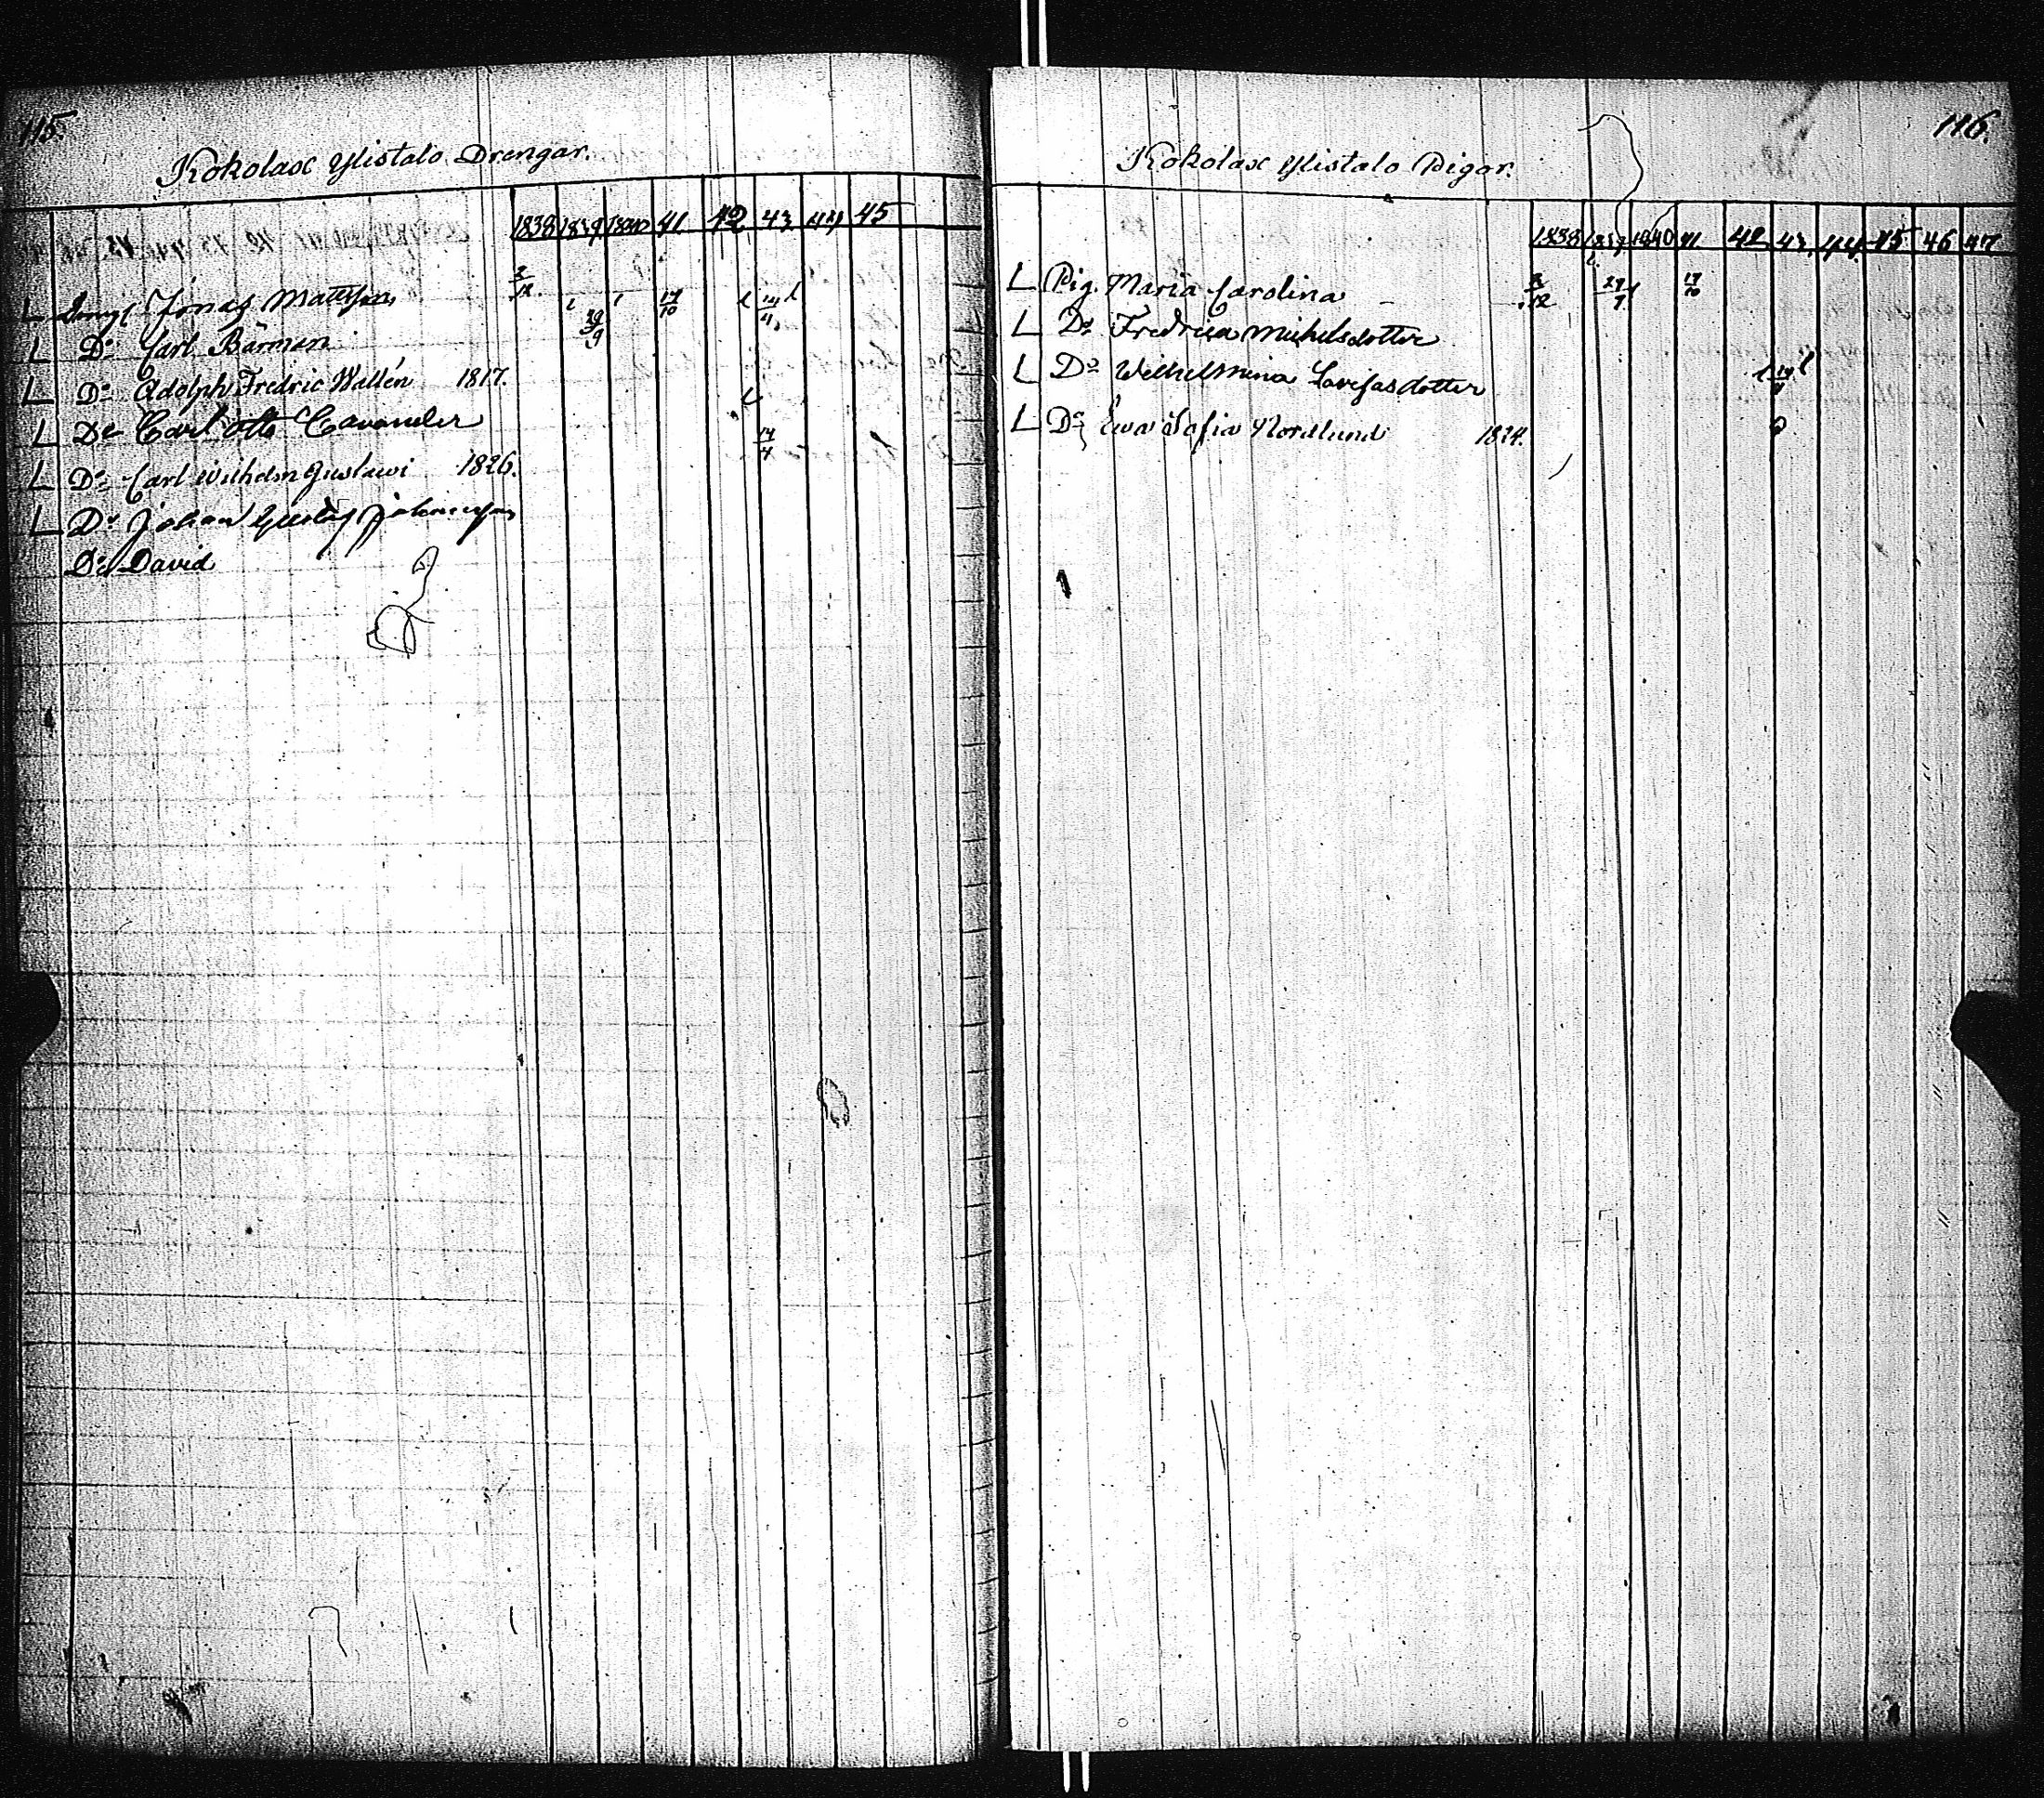 115.
Kokolax Ylistalo Drengar.
1838 1839 1840 41 42 43 44 45
L Jonas Mattsson 3/12 17/10 l 14/4 l
L Do Carl Bärman 29/9
L Do Adolph Fredric Wallén 1817.
L Do Carl Otto Cavander 14/4
L Do Carl Wilhelm Gustawi 1826.
L Do Johan Gustaf Johansson
Do David
116.
Kokolax Ylistalo Pigor.
1838 1839 1840 41 42 43 44 45 46 47
L Pig. Maria Carolina 3/12 29/9 17/10
L Do Fredrica Michelsdotter
L Do Wilhelmina Lovisasdotter l 14/4 l
L Do Eva Sofia Nordlund 1824.